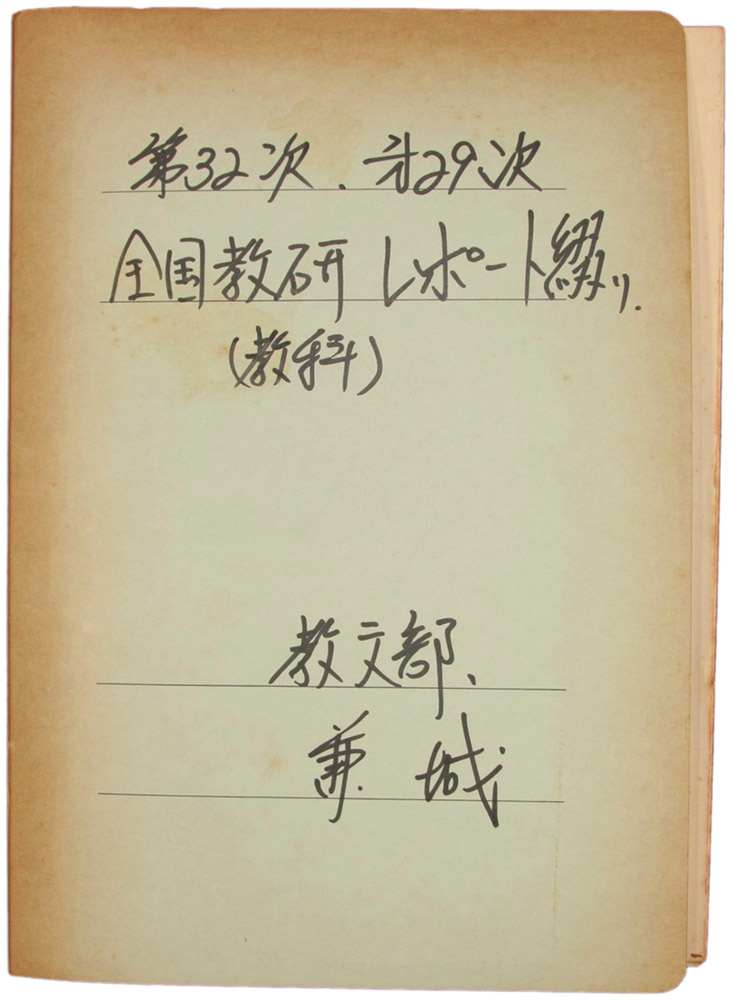 第32次．才29次
全国教研 レポート綴り.
(教科)
教文部、
兼城